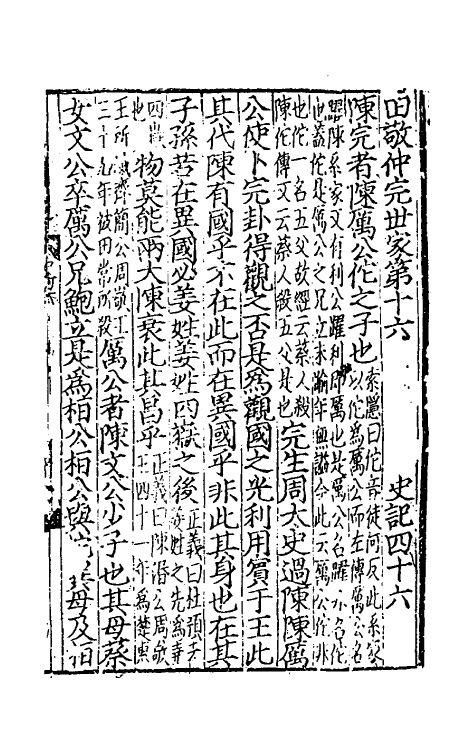 田敬仲完世家第十六　史記四十六
陳完者陳厲公佗之子也索隱曰佗音徒何反此系家
以佗爲厲公而左傳厲公名
躍陳系家又有利公躍利即厲也是厲公名躍名佗
也蓋佗是厲公之兄立未踰年無謚今此云厲公佗非
也佗一名五父故經云蔡人殺
陳佗傳又云蔡人殺五父是也完生周太史過陳陳厲
公使卜完卦得觀之否是爲觀國之光利用賓于王此
其代陳有國乎不在此而在異國乎非此其身也在其
子孫若在異國必姜姓姜姓四嶽之後正義曰杜預云
姜姓之先爲堯
四嶽
也物莫能兩大陳衰此其昌乎正義曰陳湣公周敬
王四十一年爲楚惠
王所滅齊簡公周敬王
三十九年被田常所殺厲公者陳文公少子也其母蔡
女文公卒厲公兄鮑立是爲桓公桓公與母及桓